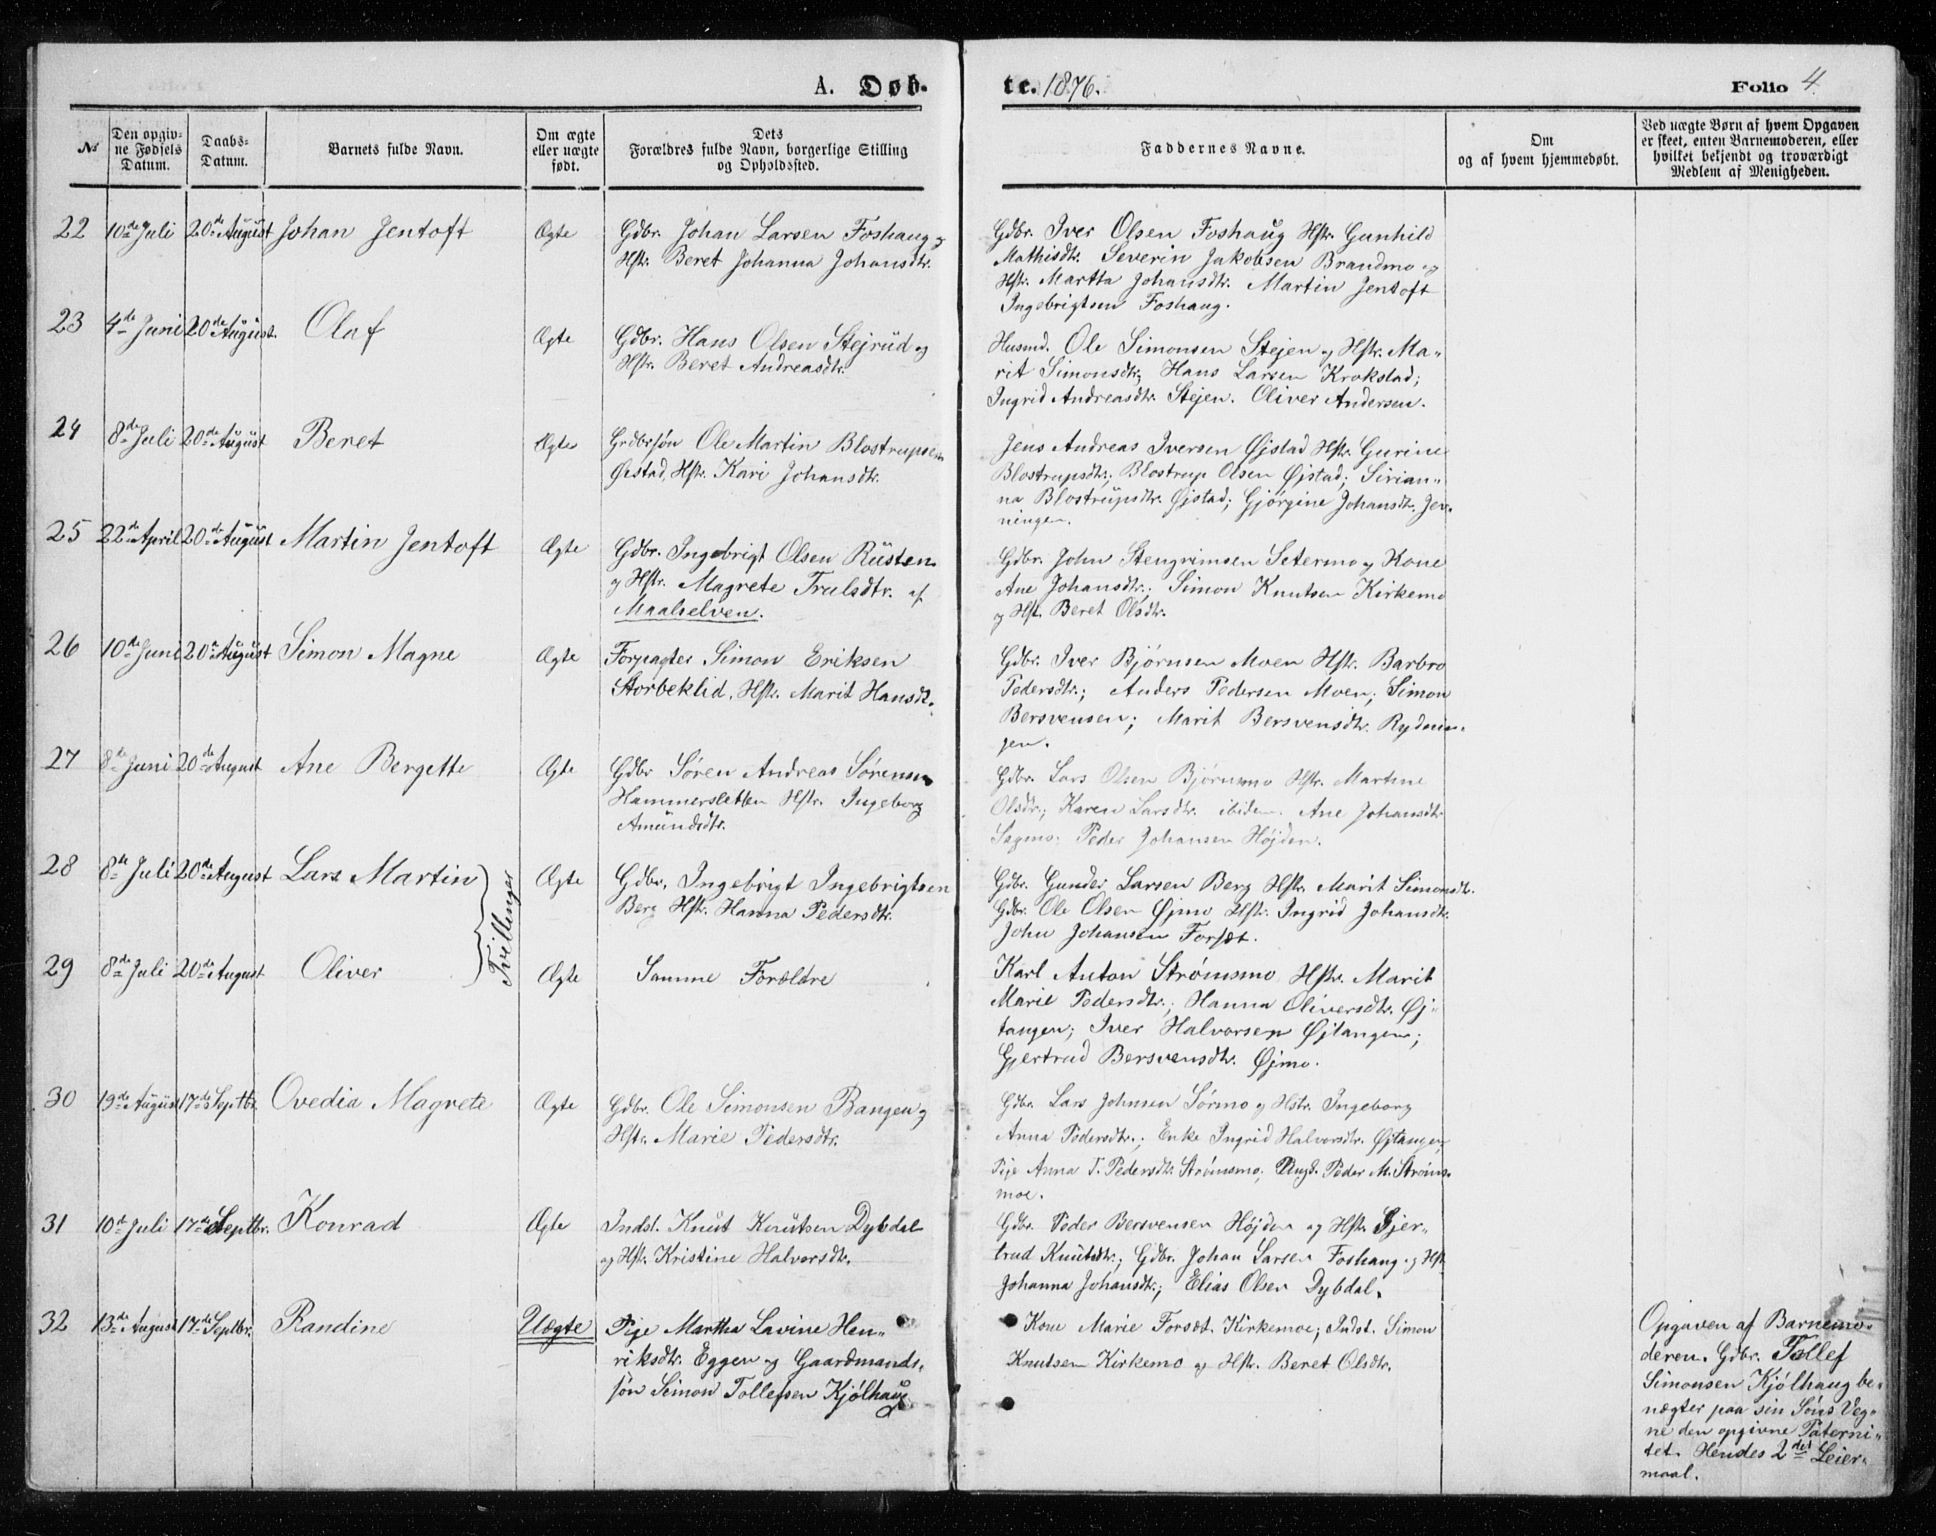 A. Døb-
te. 1876.
Folio 4
№
Den opgiv-
ne Fødsels
Datum.
Daabs-
Datum.
Barnets fulde Navn.
Om ægte
eller uægte
født.
Dets
Forældres fulde Navn, borgerlige Stilling
og Opholdssted.
Faddernes Navne.
Om
og af hvem hjemmedøbt.
Ved uægte Børn af hvem Opgaven
er skeet, enten Barnemoderen, eller
hvilket bekjendt og troværdigt
Medlem af Menigheden.
22 10de Juli 20de August Johan Jentoft Ægte
Gdbr. Johan Larsen Foshaug og
Hstr. Beret Johanna Johansdtr.
Gdbr. Iver Olsen Foshaug Hstr. Gunhild
Mathisdtr. Severin Jakobsen Brandmo og
Hstr. Martha Johansdtr. Martin Jentoft
Ingebrigtsen Foshaug.
23 4de Juni 20de August. Olaf Ægte
Gdbr. Hans Olsen Stejrud og
Hstr. Beret Andreasdtr.
Husmd. Ole Simonsen Stejen og Hstr. Ma-
rit Simonsdtr, Hans Larsen Krokstad;
Ingrid Andreasdtr. Stejen. Oliver Andersen.
24 8de Juli 20de August Beret Ægte
Grdbrsøn Ole Martin Blostrupsen
Øistad, Hstr. Kari Johansdtr.
Jens Andreas Iversen Øjstad Hstr. Gurine
Blostrupsdtr.; Blostrup Olsen Øjstad; Sirian-
na Blostrupsdtr. Øjstad; Gjørgine Johansdtr. Jev-
ningen.
25 22de April 20de August Martin Jentoft Ægte
Gdbr. Ingebrigt Olsen Rüsten
og Hstr. Magrete Trulsdtr. af
Maalselven.
Gdbr. John Stengrimsen Setermo og Kone
Ane Johansdtr.; Simon Knutsen Kirkemo
og Hst. Beret Olsdtr.
26 10de Juni 20de August Simon Magne Ægte
Forpagter Simon Eriksen
Storbeklid, Hstr. Marit Hansdt.
Gdbr. Iver Bjørnsen Moen Hstr. Barbro
Pedersdtr.; Anders Pedersen Moen; Simon
Bersvensen; Marit Bersvensdtr. Rydnin-
gen.
27 8de Juni 20de August Ane Bergette Ægte
Gdbr Søren Andreas Sørensen
Hammersletten Hstr. Ingeborg
Amundsdtr.
Gdbr. Lars Olsen Bjørnsmo Hstr. Martine
Olsdtr.; Karen Larsdtr. ibiden. Ane Johansdtr
Sagmo; Peder Johansen Højden.
28 8de Juli 20de August Lars Martin Tvillinger Ægte
Gdbr. Ingebrigt Ingebrigtsen
Berg Hstr. Hanna Pedersdtr.
Gdbr. Gunder Larsen Berg Hstr. Marit Simonsdtr.
Gdbr. Ole Olsen Øjmo Hstr. Ingrid Johansdtr.
John Johansen Forsæt.
29 8de Juli 20de August Oliver Ægte
Samme Forældre
Karl Anton Strømsmo Hstr. Marit
Marie Pedersdtr.; Hanna Oliversdtr. Øj-
tangen; Iver Halvorsen Øjtangen;
Gjertrud Bersvensdtr. Øjmo.
30 19de August 17de Septbr. Ovedia Magrete Ægte
Gdbr. Ole Simonsen Bangen og
Hstr. Marie Pedersdtr.
Gdbr. Lars Johnsen Sørmo og Hstr. Ingeborg
Anna Pedersdtr.; Enke Ingrid Halvorsdtr. Øjtangen;
Pige Anna P. Pedersdtr. Strømsmo; Ungk. Peder M. Strøms-
moe.
31 10de Juli 17de Septbr. Konrad Ægte
Indst. Knut Knutsen Dybdal
og Hstr. Kristine Halvorsdtr.
Gdbr. Peder Bersvensen Højden og Hstr. Gjer-
trud Knutsdtr.; Gdbr. Johan Larsen Foshaug og Hst
Johanna Johansdtr.; Elias Olsen Dybdal.
32 13de August 17de Septbr. Randine Uægte
Pige Martha Lavine Hen-
riksdtr. Eggen og Gaardmands-
søn Simon Tollefsen Kjølhaug
Kone Marie Forsæt. Kirkemoe; Indst. Simon
Knutsen Kirkemo og Hstr. Beret Olsdtr.
Opgaven af Barnemo-
deren. Gdbr. Tollef
Simonsen Kjølhaug be-
nægter paa sin Søns Veg-
ne den opgivne Paterni-
tet. Hendes 2det Leier-
maal.